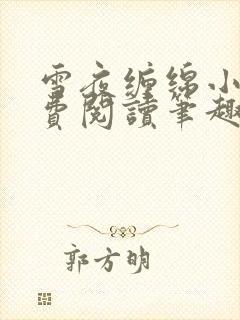 雪夜缠绵小
费阅读笔趣
郭方明